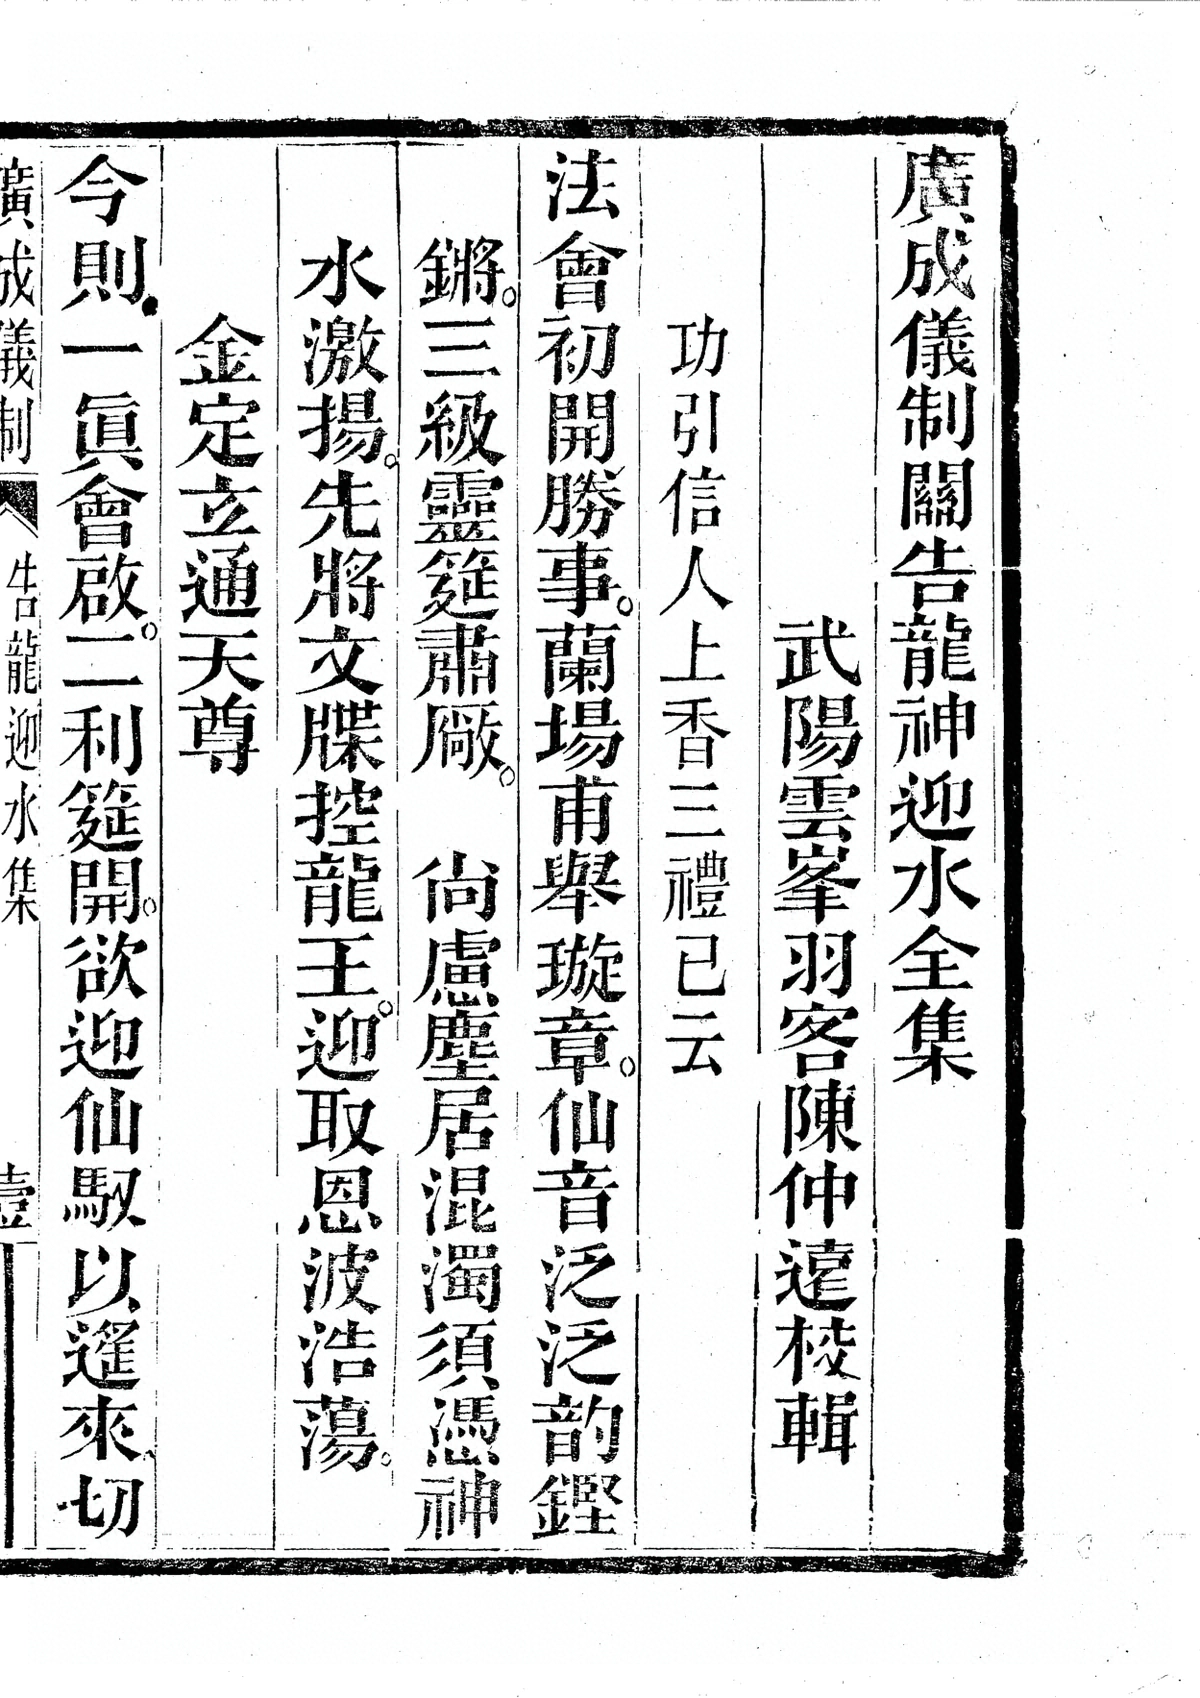 廣成儀制關告龍神迎水全集
武陽雲峯羽客陳仲遠校輯
功引信人上香三禮已云
法會初開勝事。蘭場甫舉璇章。仙音泛泛韵鏗
鏘。三級靈筵肅厰。尙慮塵居混濁須憑神
水激揚。先將文牒控龍王。迎取恩波浩蕩。
金定立通天尊
今則。一眞會啟。二利筵開。欲迎仙馭以遙來、切
廣成儀制 告龍迎水集 壹